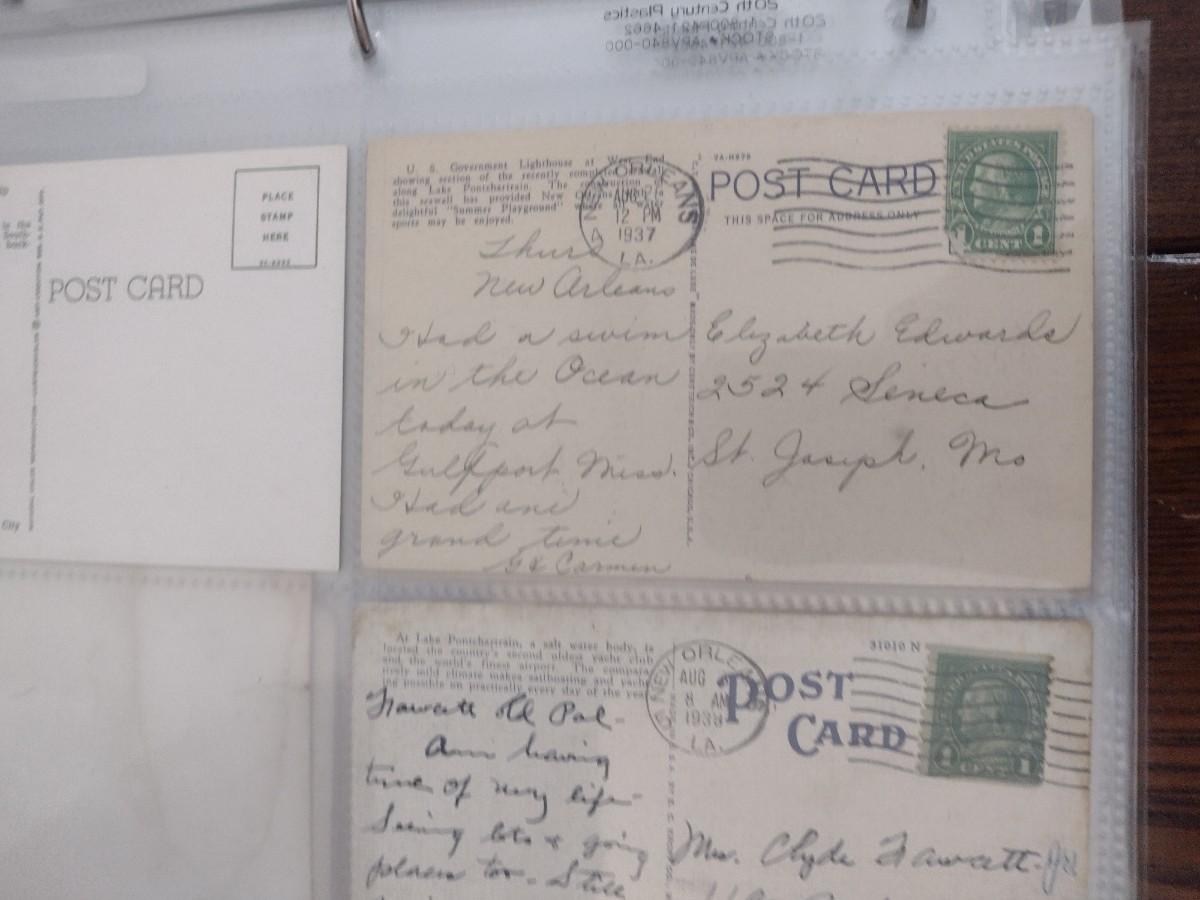 20th Century Plastics
1-800-421-4662
STOCK # APV840-000
PLACE
STAMP
HERE
POST CARD
City
U. S. Government Lighthouse at West End
showing section of the recently
along Lake Pontchartrain. The construction of
this seawall has provided New Orleans
delightful "Summer Playground" where
sports may be enjoyed.
NEW ORLEANS
AUG 26
12 PM
1937
LA.
2A-H976
POST CARD
THIS SPACE FOR ADDRESS ONLY
UNITED STATES POSTAGE
1 CENT 1
Thurs
New Orleans
Had a swim
in the Ocean
today at
Gulfport Miss.
Had and
grand time
Carmen
Elizabeth Edwards
2524 Seneca
St. Joseph, Mo
At Lake Pontchartrain, a salt water body, is
located the country's second oldest yacht club
and the world's finest airport. The compara-
tively mild climate makes sailboating and yacht-
ing possible on practically every day of the year.
NEW ORLEANS
AUG
8 AM
1938
LA.
31010 N
POST
CARD
1 CENT 1
Fawcett Old Pal -
Am having
time of my life -
Seeing lots & going
places too - Still
Mrs. Clyde Fawcett - Jr.